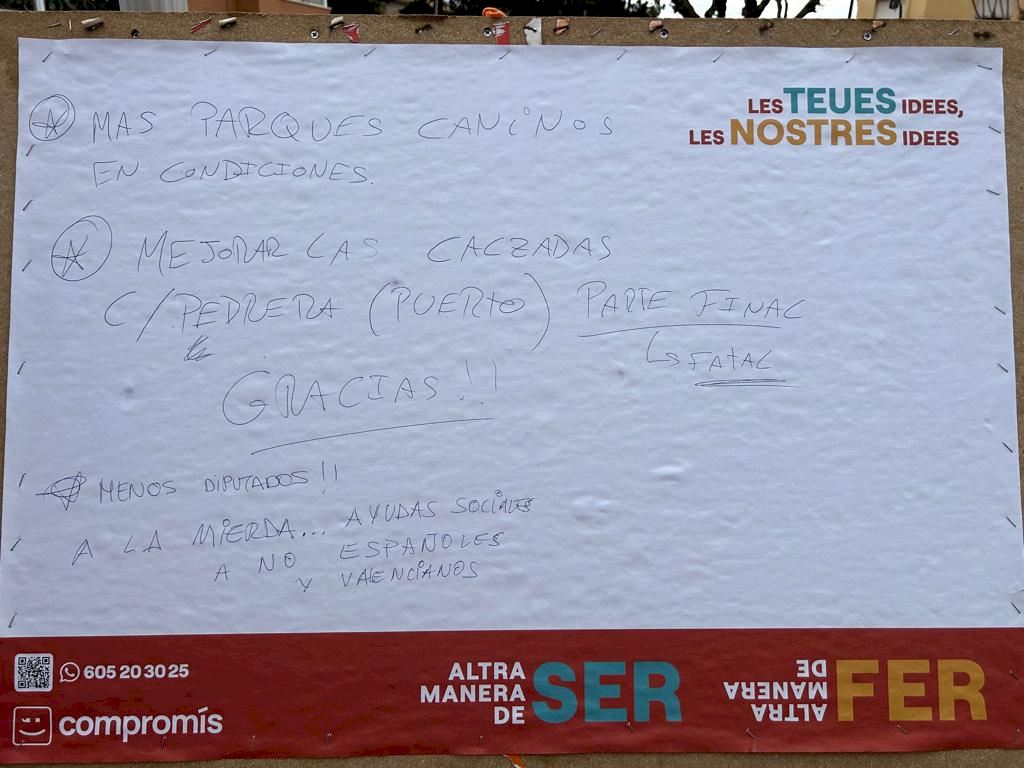 LES TEUES IDEES,
LES NOSTRES IDEES
MAS PARQUES CANINOS
EN CONDICIONES.
MEJORAR LAS CALZADAS
C/PEDRERA (PUERTO) PARTE FINAL
↳ FATAL.
GRACIAS!!
MENOS DIPUTADOS!!
A LA MIERDA... AYUDAS SOCIALES
A NO ESPAÑOLES
Y VALENCIANOS
605 20 30 25
compromís
ALTRA
MANERA
DE SER
ALTRA
MANERA
DE FER